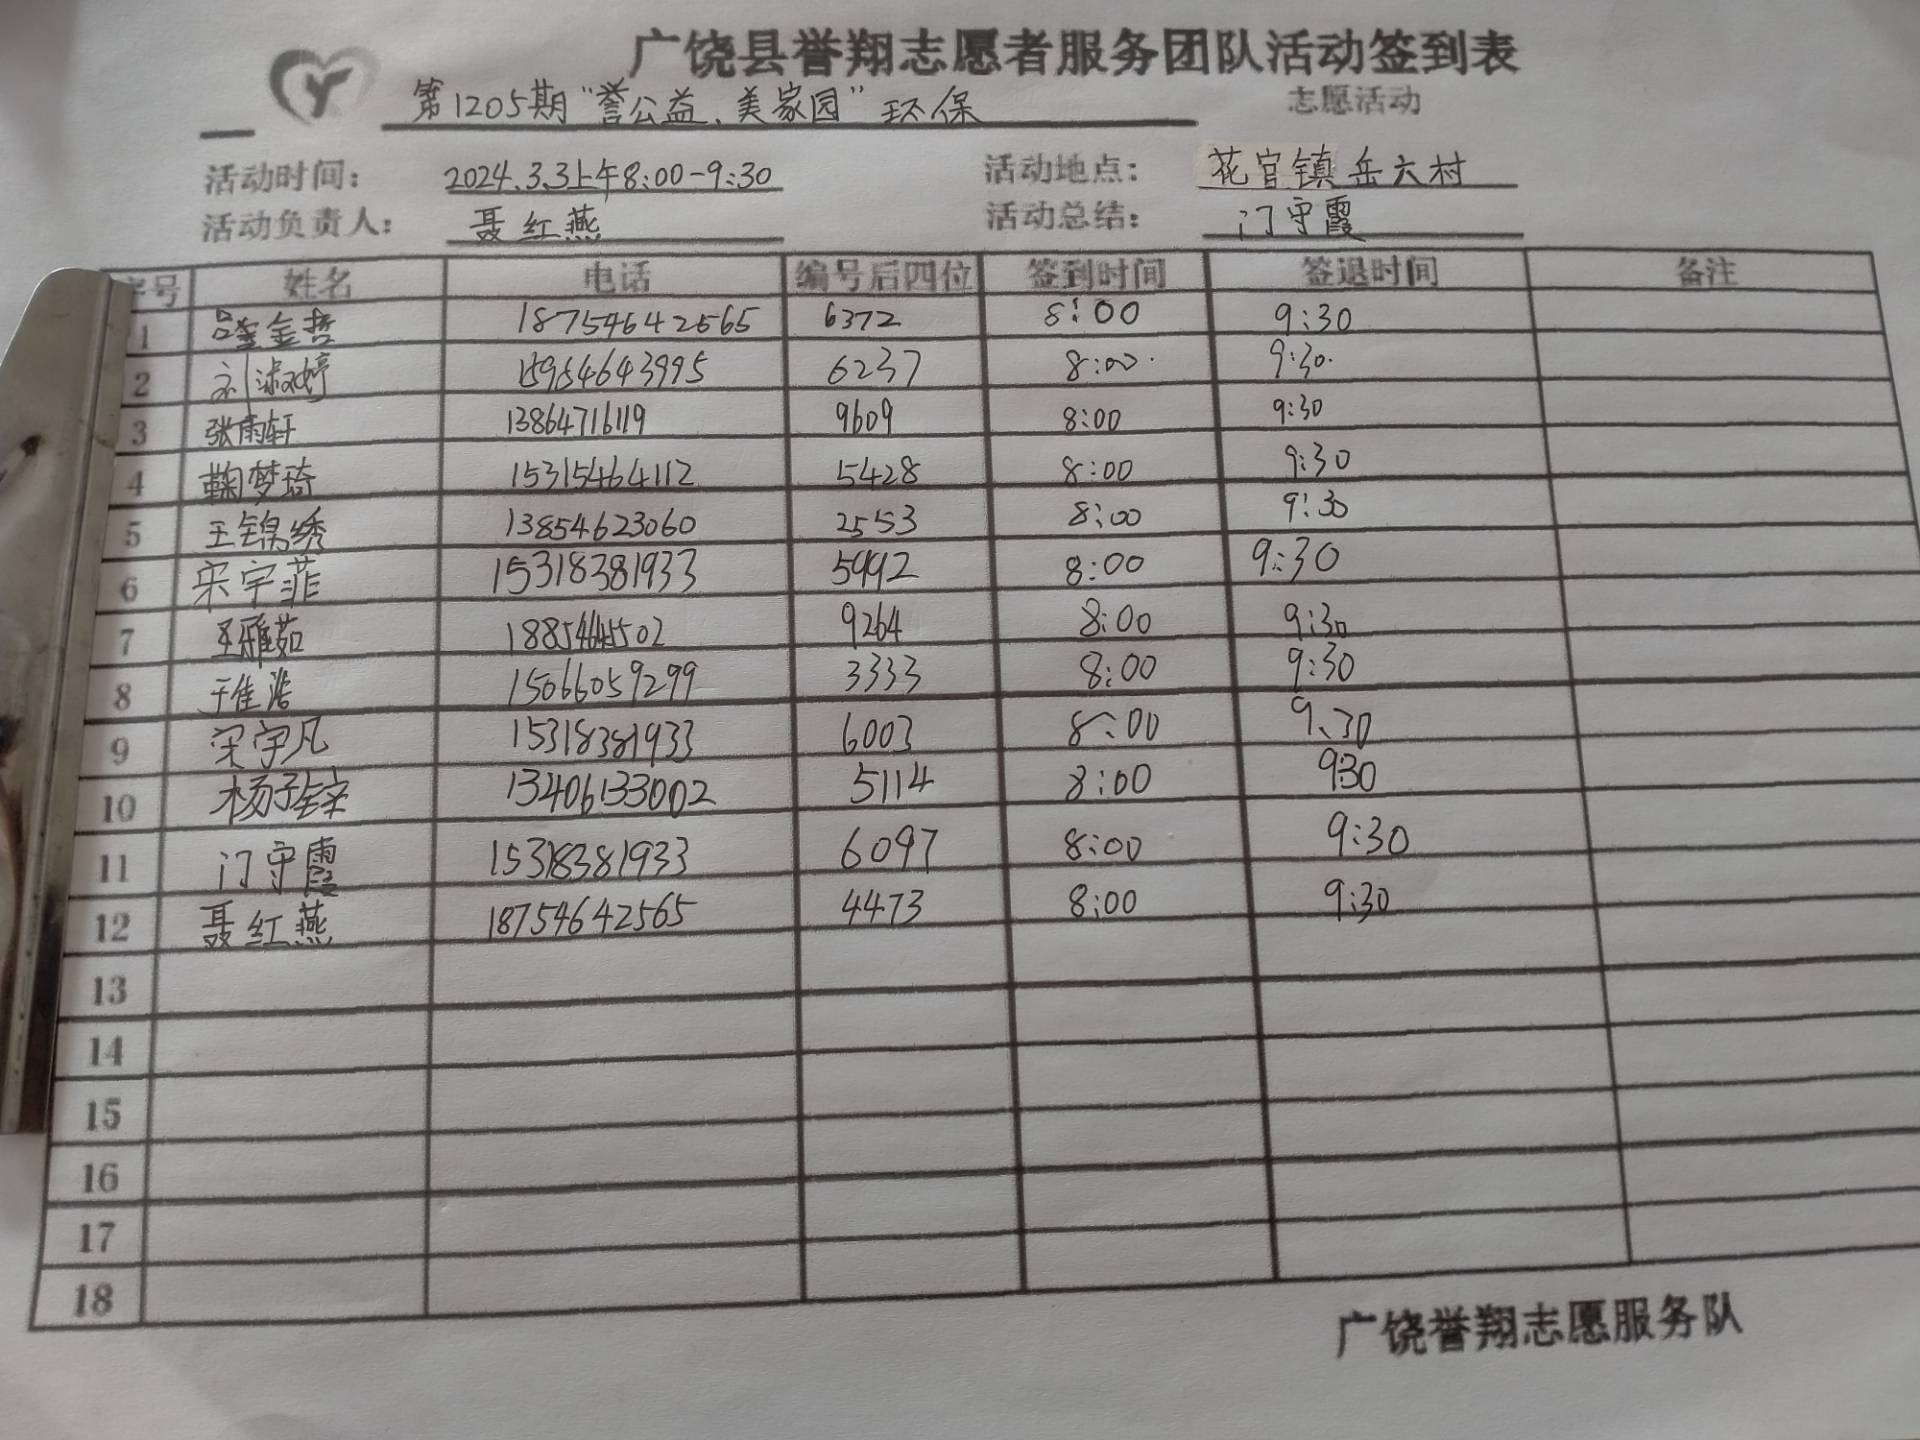 广饶县誉翔志愿者服务团队活动签到表
第1205期“誉公益、美家园”环保 志愿活动
活动时间: 2024.3.3上午8:00-9:30 活动地点: 花官镇岳六村
活动负责人: 聂红燕 活动总结: 门守霞
序号 姓名 电话 编号后四位 签到时间 签退时间 备注
1 金哲 18754642565 6372 8:00 9:30
2 刘淑婷 15954643995 6237 8:00 9:30
3 张雨轩 13864716119 9609 8:00 9:30
4 鞠梦琦 15315464112 5428 8:00 9:30
5 王锦绣 13854623060 2553 8:00 9:30
6 宋宇菲 15318381933 5992 8:00 9:30
7 王雅茹 9264 8:00 9:30
8 于佳浩 15066059299 3333 8:00 9:30
9 宋宇凡 15318381933 6003 8:00 9:30
10 杨子锌 13406133002 5114 8:00 930
11 门守霞 15318381933 6097 8:00 9:30
12 聂红燕 18754642565 4473 8:00 9:30
13
14
15
16
17
18
广饶誉翔志愿服务队